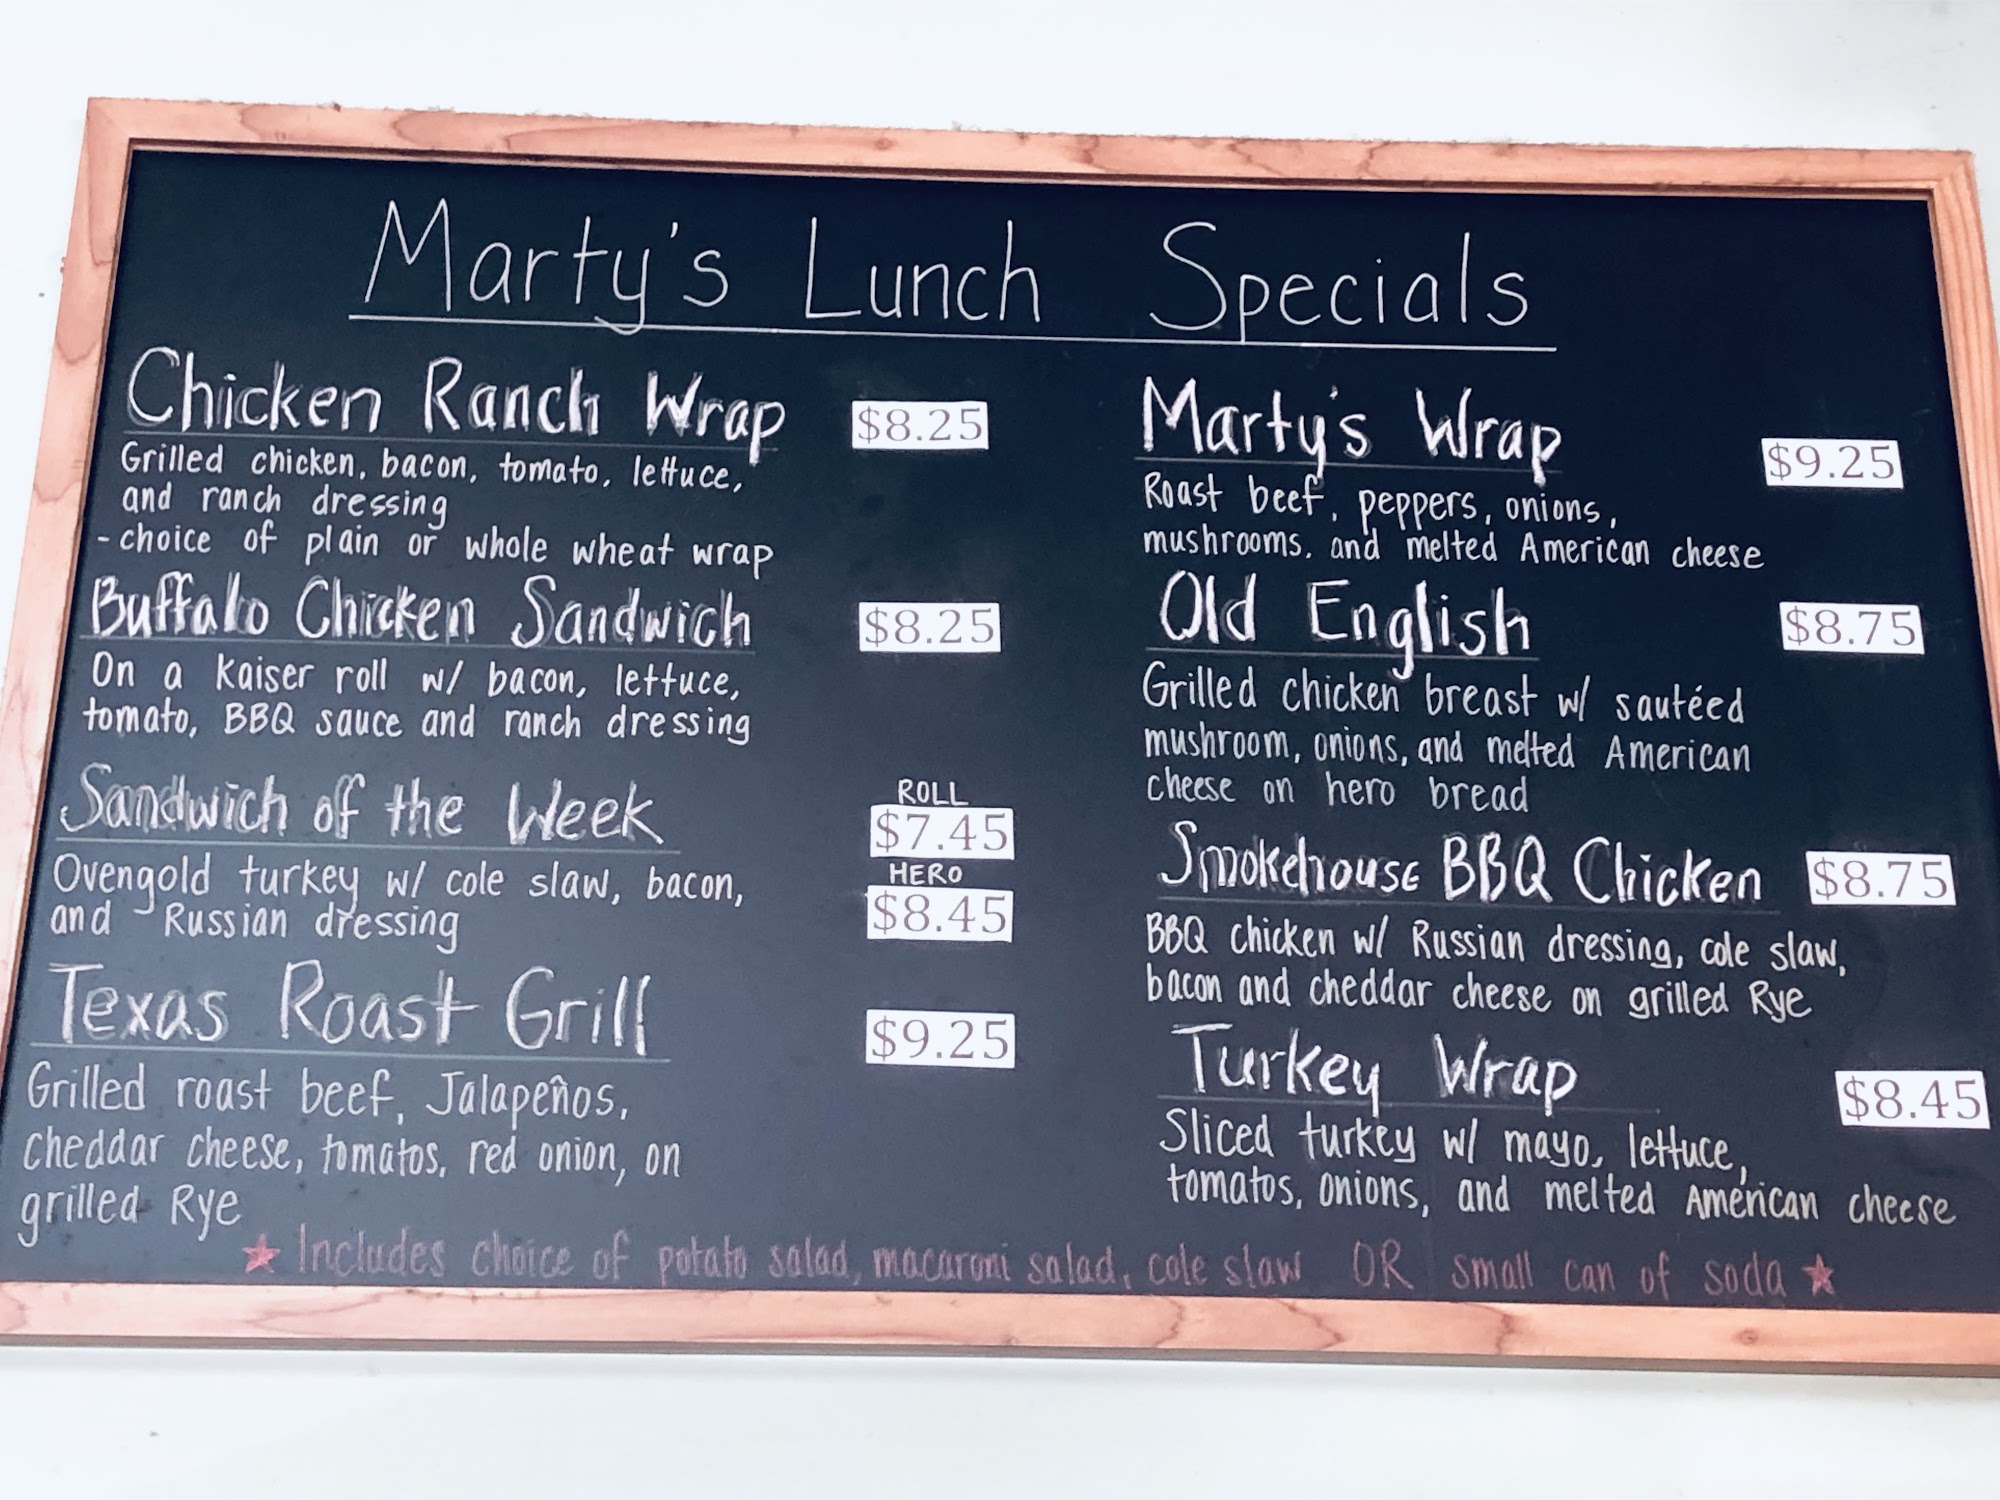 Marty's Lunch Specials
Chicken Ranch Wrap $8.25
Grilled chicken, bacon, tomato, lettuce,
and ranch dressing
- choice of plain or whole wheat wrap
Buffalo Chicken Sandwich $8.25
On a Kaiser roll w/ bacon, lettuce,
tomato, BBQ sauce and ranch dressing
ROLL
Sandwich of the Week $7.45
HERO
$8.45
Ovengold turkey w/ cole slaw, bacon,
and Russian dressing
Texas Roast Grill $9.25
Grilled roast beef, Jalapeños,
cheddar cheese, tomatos, red onion, on
grilled Rye
Marty's Wrap $9.25
Roast beef, peppers, onions,
mushrooms, and melted American cheese
Old English $8.75
Grilled chicken breast w/ sautéed
mushroom, onions, and melted American
cheese on hero bread
Smokehouse BBQ Chicken $8.75
BBQ chicken w/ Russian dressing, cole slaw,
bacon and cheddar cheese on grilled Rye
Turkey Wrap $8.45
Sliced turkey w/ mayo, lettuce,
tomatos, onions, and melted American cheese
★ Includes choice of potato salad, macaroni salad, cole slaw OR small can of soda ★